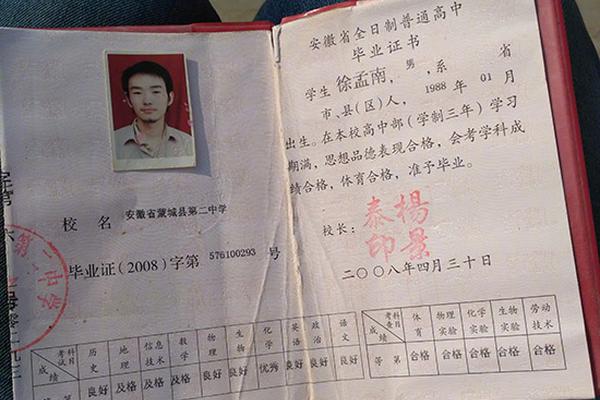 校 名 安徽省蒙城县第二中学
毕业证(2008)字第 576100293 号
第二中学
考试科目 历史 地理 信息技术 数学 物理 生物 化学 英语 政治 语文
成绩 良好 及格 及格 及格 良好 良好 优秀 良好 良好 良好
安徽省全日制普通高中
毕业证书
学生 徐孟南, 男, 系 省
市、县(区)人, 1988 年 01 月
出生。在本校高中部(学制三年)学习
期满,思想品德表现合格,会考学科成
绩合格,体育合格,准予毕业。
校长: 泰楊印景
二〇〇八年四月三十日
考查科目 体育 物理实验 化学实验 生物实验 劳动技术
成绩 等第 合格 合格 合格 合格 合格